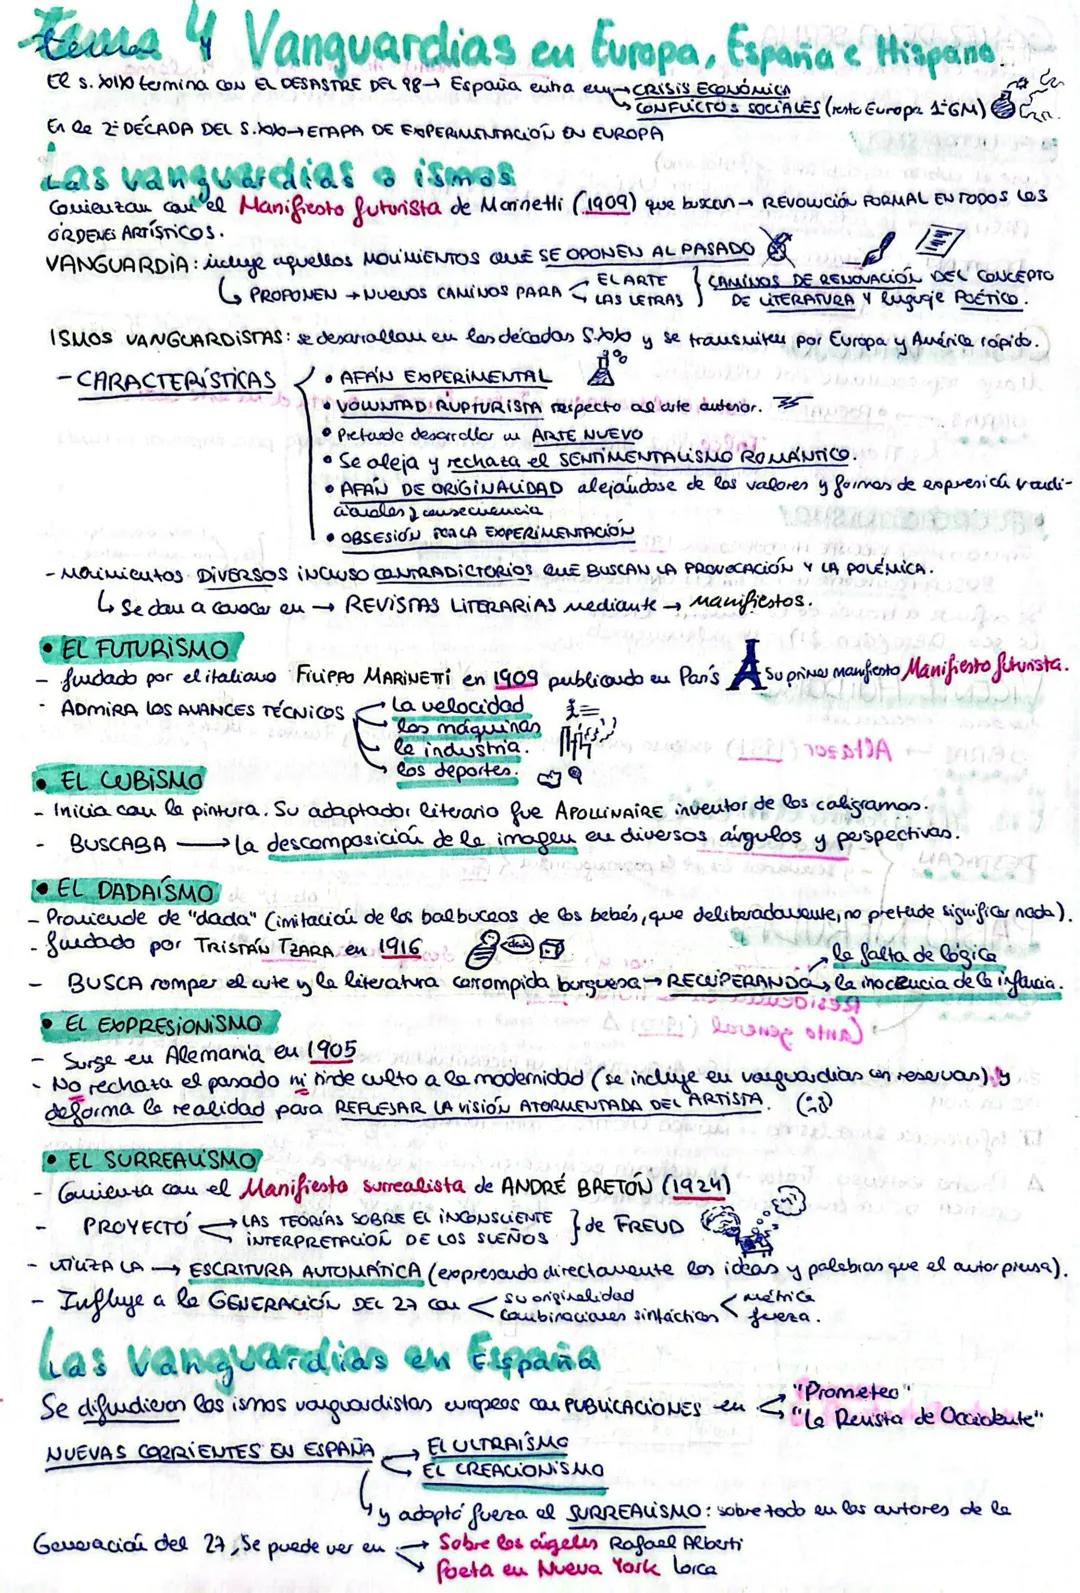 Tema 4 Vanguardias en Europa, España e Hispano.
El s. XIX termina con EL DESASTRE DEL 98→ España entra en→CRISIS ECONÓMICA
↳ CONFLICTOS SOCIALES (resto Europa 1ªGM)
En la 2ª DÉCADA DEL S.XX→ETAPA DE EXPERIMENTACIÓN EN EUROPA
Las vanguardias o ismos
Comienzan con el Manifiesto futurista de Marinetti (1909) que buscan→ REVOLUCIÓN FORMAL EN TODOS LOS
ÓRDENES ARTÍSTICOS.
VANGUARDIA: incluye aquellos MOVIMIENTOS QUE SE OPONEN AL PASADO
↳ PROPONEN → NUEVOS CAMINOS PARA EL ARTE LAS LETRAS } CAMINOS DE RENOVACIÓN DEL CONCEPTO
DE LITERATURA Y lenguaje POÉTICO.
ISMOS VANGUARDISTAS: se desarrollan en las décadas S.XX y se transmiten por Europa y América rápido.
- CARACTERÍSTICAS
• AFÁN EXPERIMENTAL
• VOLUNTAD RUPTURISTA respecto al arte anterior.
• Pretende desarrollar un ARTE NUEVO
• Se aleja y rechaza el SENTIMENTALISMO ROMÁNTICO.
• AFÁN DE ORIGINALIDAD alejándose de los valores y formas de expresión tradi-
cionales y consecuencia
• OBSESIÓN POR LA EXPERIMENTACIÓN
- Movimientos DIVERSOS INCLUSO CONTRADICTORIOS QUE BUSCAN LA PROVOCACIÓN Y LA POLÉMICA.
↳ Se dan a conocer en → REVISTAS LITERARIAS mediante → manifiestos.
• EL FUTURISMO
- fundado por el italiano FILIPPO MARINETTI en 1909 publicando en París Su primer manifiesto Manifiesto futurista.
- ADMIRA LOS AVANCES TÉCNICOS
→ la velocidad
→ las máquinas
→ la industria.
→ los deportes.
• EL CUBISMO
- Inicia con la pintura. Su adaptador literario fue APOLLINAIRE inventor de los caligramas.
- BUSCABA → la descomposición de la imagen en diversos ángulos y perspectivas.
• EL DADAÍSMO
- Proviende de "dada" (imitación de los balbuceos de los bebés, que deliberadamente, no pretende significar nada).
- fundado por TRISTÁN TZARA en 1916 dada
- BUSCA romper el arte y la literatura corrompida burguesa→ RECUPERANDO
→ la falta de lógica
→ la inocencia de la infancia.
• EL EXPRESIONISMO
- Surge en Alemania en 1905
- No rechaza el pasado ni rinde culto a la modernidad (se incluye en vanguardias con reservas) y
deforma la realidad para REFLEJAR LA VISIÓN ATORMENTADA DEL ARTISTA.
• EL SURREALISMO
- Comienza con el Manifiesto surrealista de ANDRÉ BRETÓN (1924)
- PROYECTÓ → LAS TEORÍAS SOBRE EL INCONSLIENTE
→ INTERPRETACIÓN DE LOS SUEÑOS } de FREUD
- UTILIZA LA → ESCRITURA AUTOMÁTICA (expresando directamente las ideas y palabras que el autor piensa).
- Influye a la GENERACIÓN DEL 27 con su originalidad métrica
combinaciones sintácticas fuerza.
Las vanguardias en España
Se difundieron los ismos vanguardistas europeos con PUBLICACIONES en → "Prometeo"
→ "La Revista de Occidente"
NUEVAS CORRIENTES EN ESPAÑA → El ULTRAÍSMO
→ EL CREACIONISMO
↳ y adoptó fuerza el SURREALISMO: sobretodo en los autores de la
Generación del 27, Se puede ver en → Sobre los ángeles Rafael Alberti
→ Poeta en Nueva York Lorca